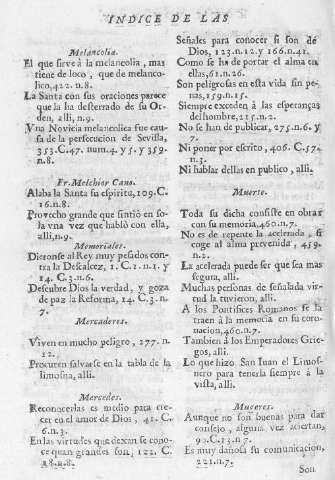 INDICE DE LAS
Melancolia.
El que sirve à la melancolia, mas
tiene de loco, que de melanco-
lico, 422. n.8.
La Santa con sus oraciones parece
que la ha desterrado de su Or-
den, alli, n.9.
Vna Novicia melancolica fue cau-
sa de la persecucion de Sevilla,
353. C.47. num.4. y 5. y 359.
n.8.
Fr. Melchior Cano.
Alaba la Santa su espiritu, 109. C.
16. n.8.
Provecho grande que sintiò en so-
la vna vez que hablò con ella,
alli, n.9.
Memoriales.
Dieronse al Rey muy pesados con-
tra la Descalcez, 1. C.1. n.1. y
14. C.3. n.6.
Descubre Dios la verdad, y goza
de paz la Reforma, 14. C.3. n.
7.
Mercaderes.
Viven en mucho peligro, 277. n.
12.
Procuren salvarse en la tabla de la
limosna, alli.
Mercedes.
Reconocerlas es medio para cre-
cer en el amor de Dios, 41. C.
6. n.3.
En las virtudes que dexan se cono-
ce quan grandes son, 122. C.
18. n.8.
Señales para conocer si son de
Dios, 123. n.12. y 166. n.41.
Como se ha de portar el alma en
ellas, 61. n.26.
Son peligrosas en esta vida sin pe-
nas, 159. n.15.
Siempre exceden à las esperanças
del hombre, 215. n.2.
No se han de publicar, 275. n.6. y
7.
Ni poner por escrito, 406. C.57.
n.3.
Ni hablar dellas en publico, alli.
Muerte.
Toda su dicha consiste en obrar
con su memoria, 460. n.7.
No es de repente la acelerada, si
coge al alma prevenida, 459.
n.2.
La acelerada puede ser que sea mas
segura, alli.
Muchas personas de señalada vir-
tud la tuvieron, alli.
A los Pontifices Romanos se la
traen à la memoria en su coro-
nacion, 460. n.7.
Tambien à los Emperadores Grie-
gos, alli.
Lo que hizo San Iuan el Limos-
nero para tenerla siempre à la
vista, alli.
Mugeres.
Aunque no son buenas para dar
consejo, alguna vez aciertan,
90. C.13. n.7.
Es muy dañosa su comunicacion,
221. n.7.
Son